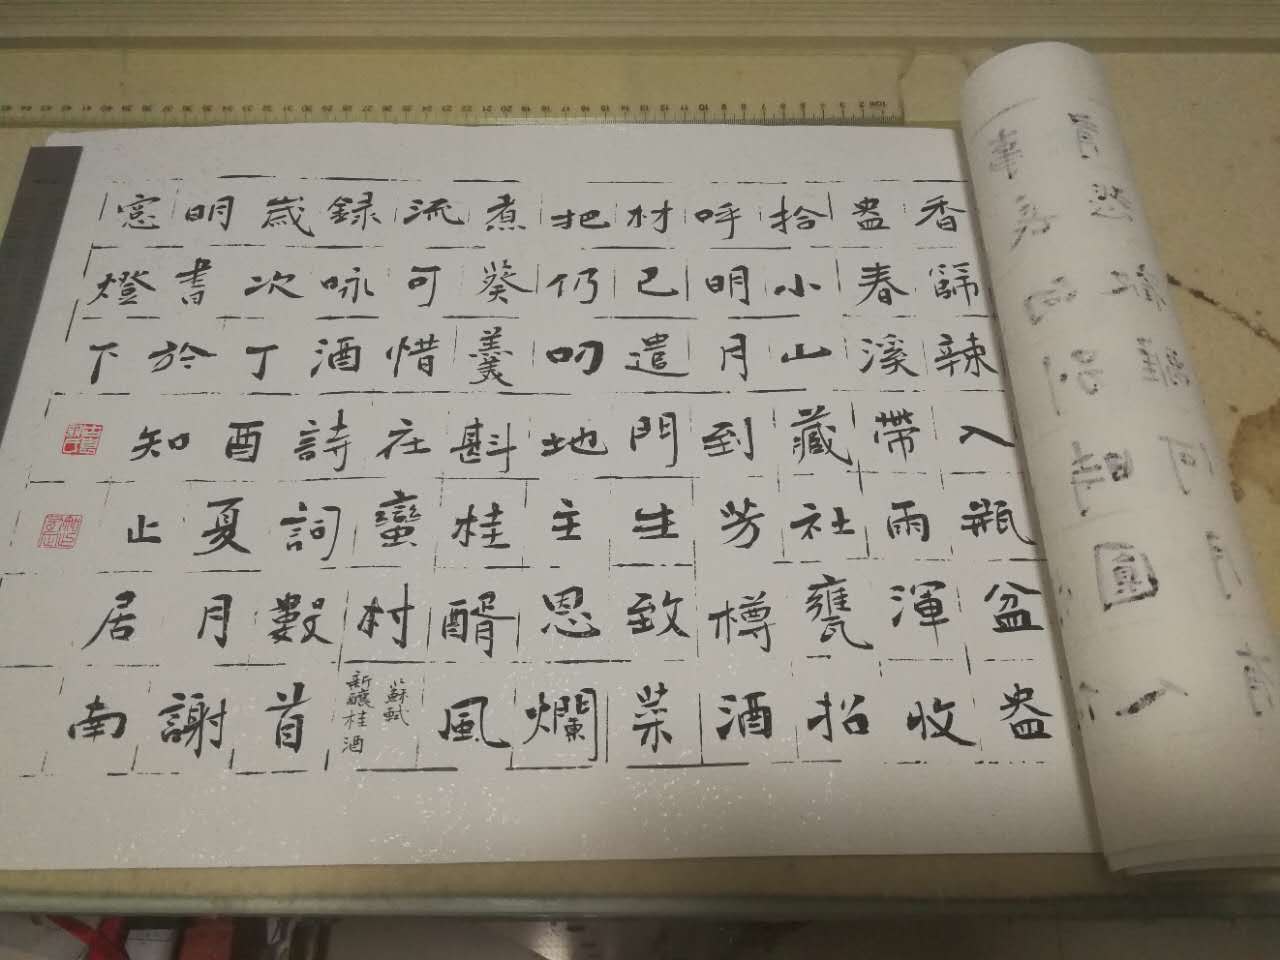 香篩辣入瓶盆盎
盎春溪帶雨渾收
拾小山藏社甕招
呼明月到芳樽酒
材已遣門生致菜
把仍叨地主恩爛
煮葵羹斟桂醑風
流可惜在蠻村
蘇軾
新釀桂酒
録咏酒詩詞數首
歲次丁酉夏月謝
明書於知止居南
窓燈下